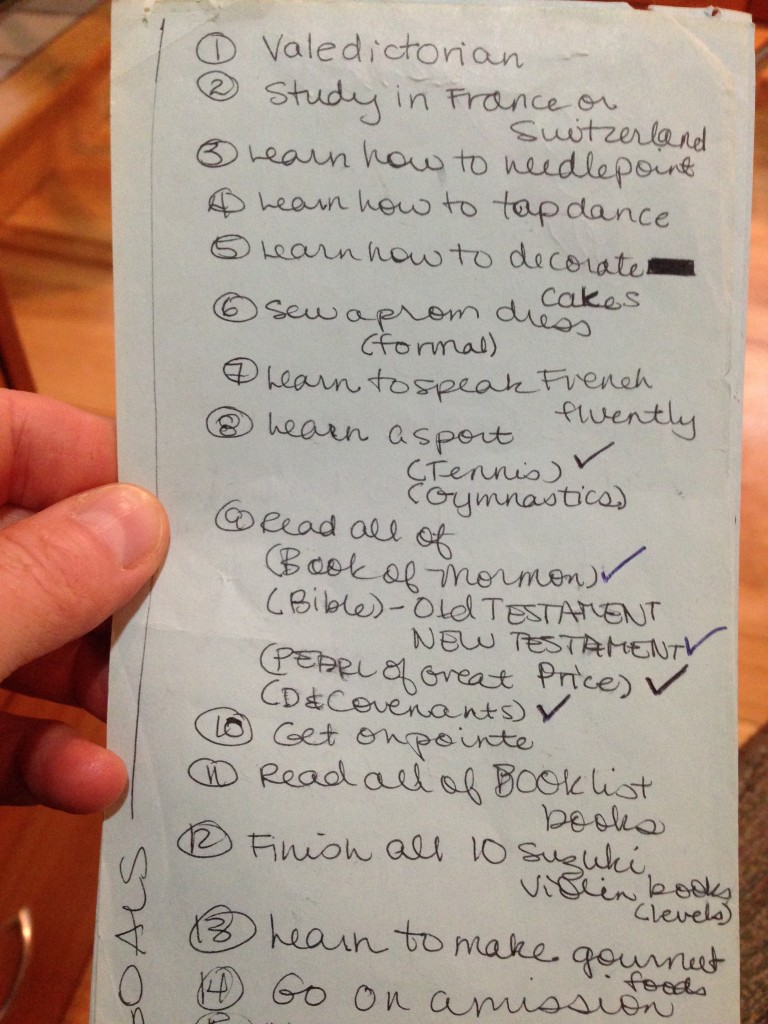 ① Valedictorian
② Study in France or
Switzerland
③ Learn how to needlepoint
④ Learn how to tap dance
⑤ Learn how to decorate
cakes
⑥ Sew a prom dress
(formal)
⑦ Learn to speak French
fluently
⑧ Learn a sport
(Tennis) ✓
(Gymnastics)
⑨ Read all of
(Book of Mormon) ✓
(Bible) - Old TESTAMENT
NEW TESTAMENT ✓
(PEARL of Great Price) ✓
(D & Covenants) ✓
⑩ Get on pointe
⑪ Read all of BOOK list
books
⑫ Finish all 10 Suzuki
violin books
(levels)
⑬ Learn to make gourmet
foods
⑭ Go on a mission
GOALS